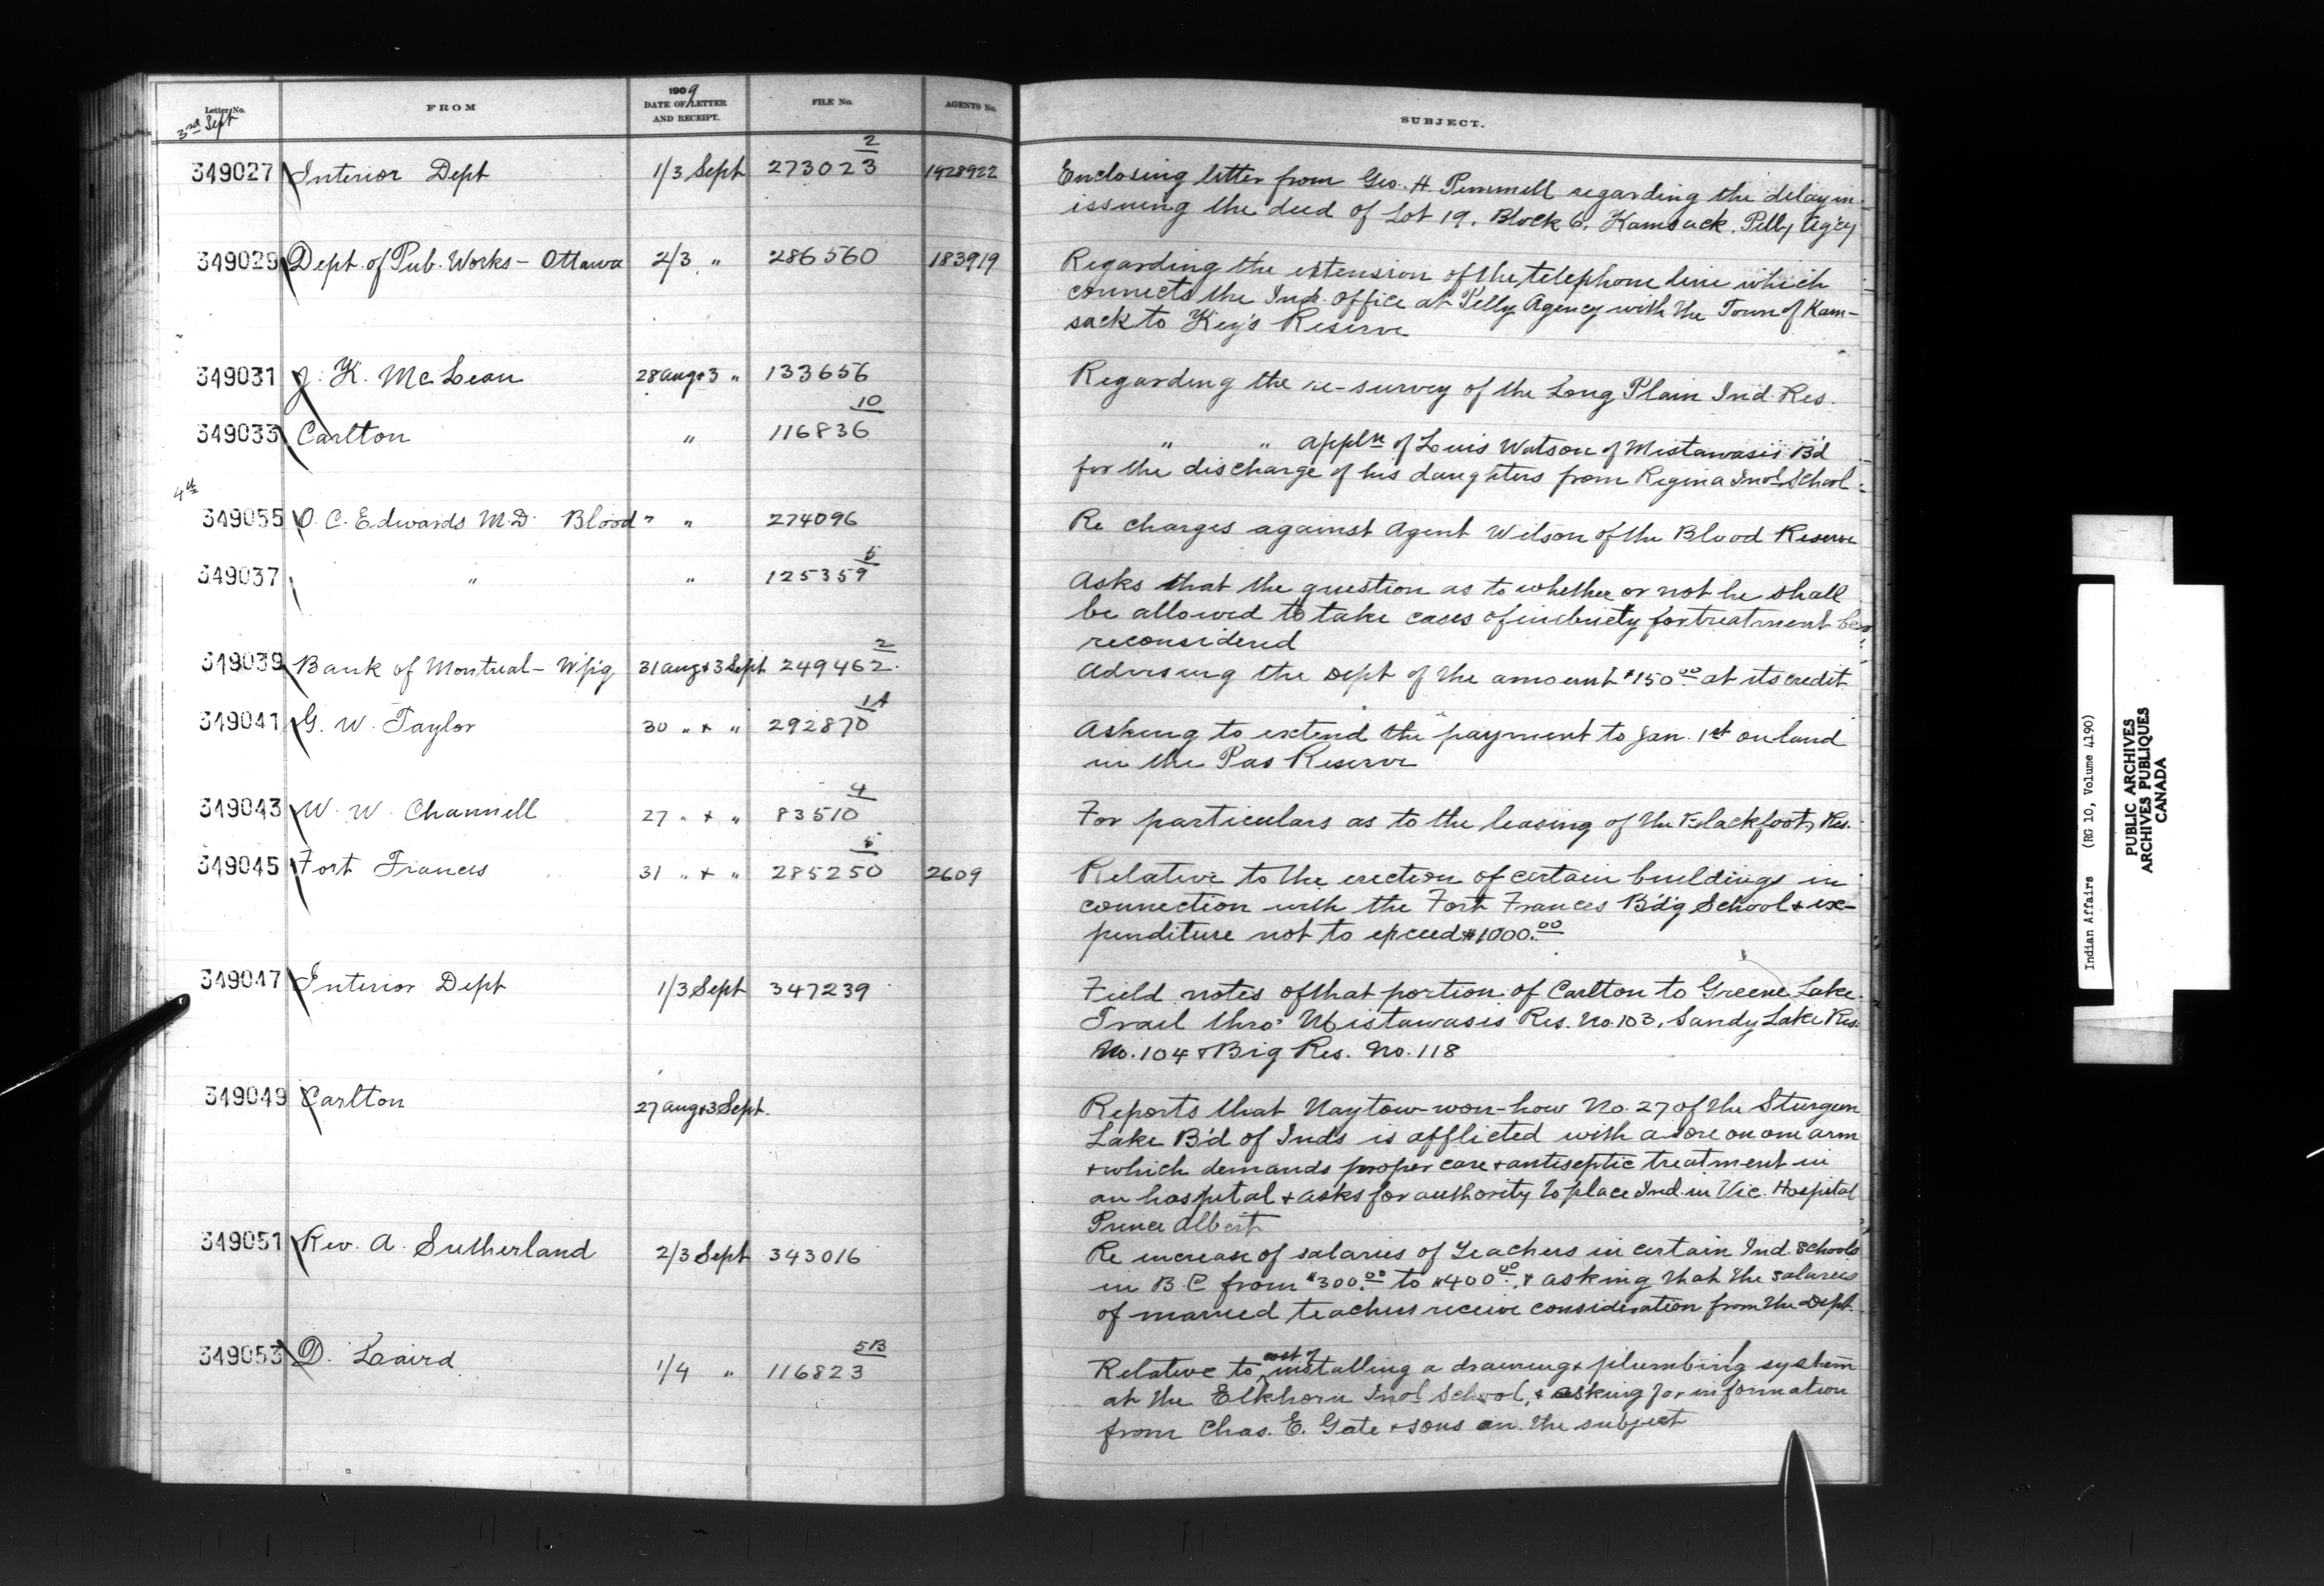 Letter No. FROM 1909 DATE OF LETTER AND RECEIPT. FILE No. AGENTS No. SUBJECT.
3rd Sept
349027 Interior Dept 1/3 Sept 273023 2 1928922 Enclosing letter from Geo. H. Pummell regarding the delay in
issuing the deed of Lot 19, Block 6, Kamsack, Pelly Ag'cy
349029 Dept. of Pub. Works - Ottawa 2/3 " 286560 183919 Regarding the extension of the telephone line which
connects the Ind. Office at Pelly Agency with the Town of Kam-
sack to Key's Reserve
349031 J. K. McLean 28 Aug + 3 " 133656 Regarding the re-survey of the Long Plain Ind. Res.
349033 Carlton " 116836 10 " " appln of Louis Watson of Mistawasis B'd
for the discharge of his daughters from Regina Indl School
4th
349055 O. C. Edwards M.D. Blood " " 274096 Re charges against Agent Wilson of the Blood Reserve
349037 " " 125359 5 Asks that the question as to whether or not he shall
be allowed to take cases of inebriety for treatment be
reconsidered
349039 Bank of Montreal - W'p'g 31 Aug + 3 Sept 249462 2 Advising the Dept of the amount $150.00 at its credit
349041 G. W. Taylor 30 " + " 292870 1A Asking to extend the payment to Jan. 1st on land
in the Pas Reserve
349043 W. W. Channell 27 " + " 83510 4 For particulars as to the leasing of the Blackfoot Res.
349045 Fort Frances 31 " + " 285250 5 2609 Relative to the erection of certain buildings in
connection with the Fort Frances B'd'g School + ex-
penditure not to exceed $1000.00
349047 Interior Dept 1/3 Sept 347239 Field notes of that portion of Carlton to Greene Lake
Trail thro' Mistawasis Res. No. 103, Sandy Lake Res.
No. 104 + Big Res. No. 118
349049 Carlton 27 Aug + 3 Sept. Reports that Naytow-won-how No. 27 of the Sturgeon
Lake B'd of Inds is afflicted with a sore on one arm
+ which demands proper care + antiseptic treatment in
an hospital + asks for authority to place Ind. in Vic. Hospital
Prince Albert
349051 Rev. A. Sutherland 2/3 Sept 343016 Re increase of salaries of Teachers in certain Ind. Schools
in B C from $300.00 to $400.00, + asking that the salaries
of married teachers receive consideration from the Dept.
349053 D. Laird 1/4 " 116823 5B Relative to cost of installing a draining + plumbing system
at the Elkhorn Indl School, + asking for information
from Chas. E. Gate + sons on the subject
Indian Affairs (RG 10, Volume 4190)
PUBLIC ARCHIVES
ARCHIVES PUBLIQUES
CANADA